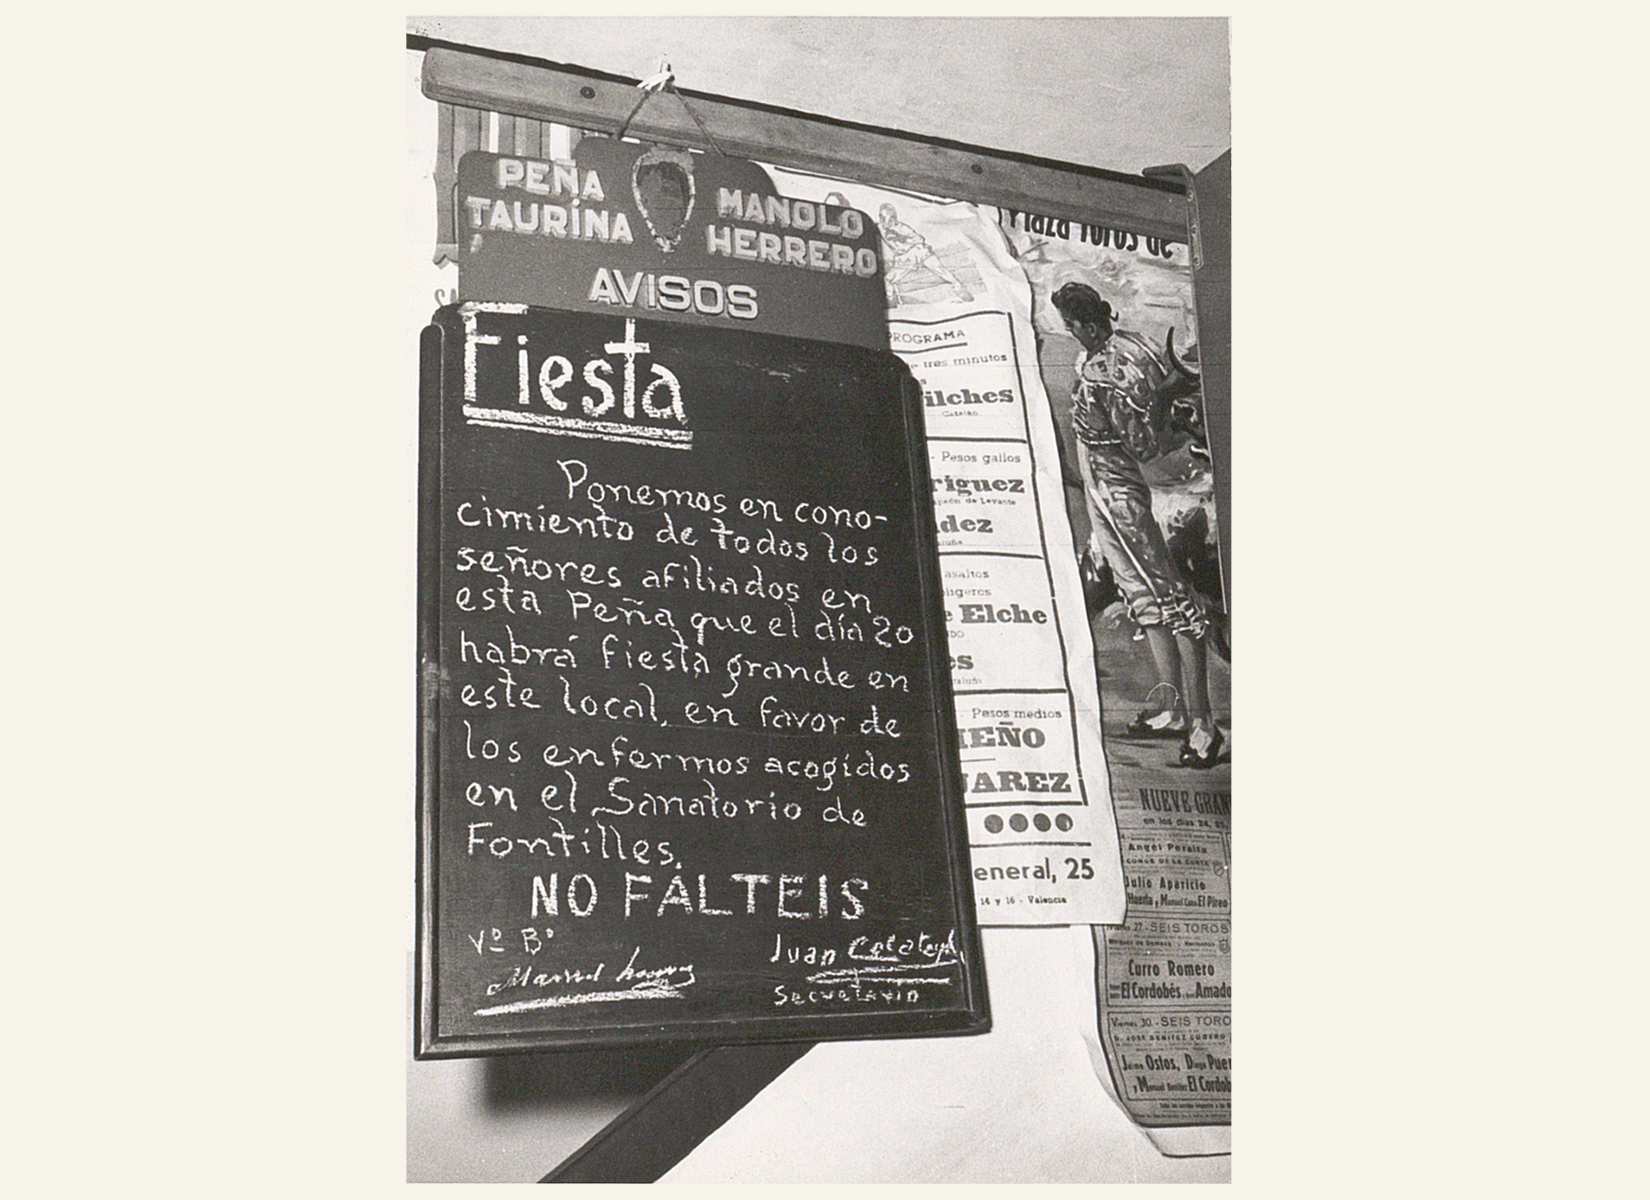 PEÑA
TAURINA
MANOLO
HERRERO
AVISOS
Fiesta
Ponemos en cono-
cimiento de todos los
señores afiliados en
esta Peña que el día 20
habrá fiesta grande en
este local, en favor de
los enfermos acogidos
en el Sanatorio de
Fontilles.
NO FALTEIS
Vº Bº
Juan Calatayud
Secretario
PROGRAMA
tres minutos
ilches
Catalán
- Pesos gallos
riguez
peón de Levante
dez
asaltos
ligeros
e Elche
es
Pesos medios
EÑO
AREZ
eneral, 25
14 y 16 - Valencia
Plaza Toros de
NUEVE GRAN
en los días 24, 25,
Angel Peralta
CONDE DE LA CORTE
Julio Aparicio
Huerta y Manuel Cano El Pireo
27.-SEIS TOROS
Curro Romero
El Cordobés Amado
Viernes 30.-SEIS TORO
D. JOSE BENITEZ CUBERO
Jaime Ostos, Diego Puer
y Manuel Benítez El Cordob